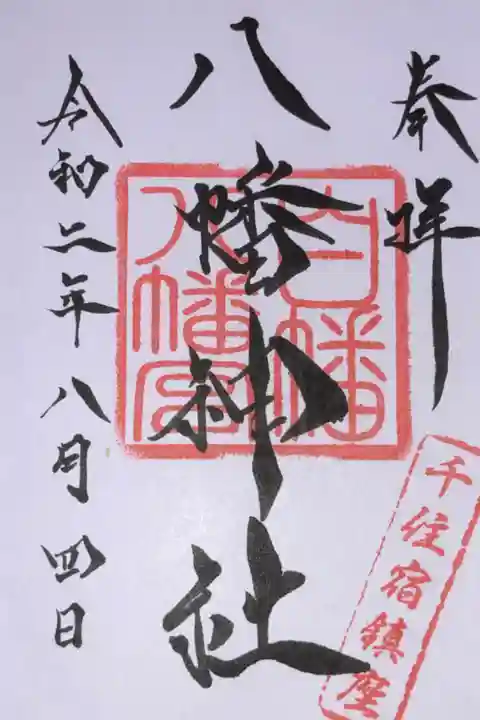 奉拝
八幡神社
令和二年八月四日
白幡
八幡宮
千住宿鎮座